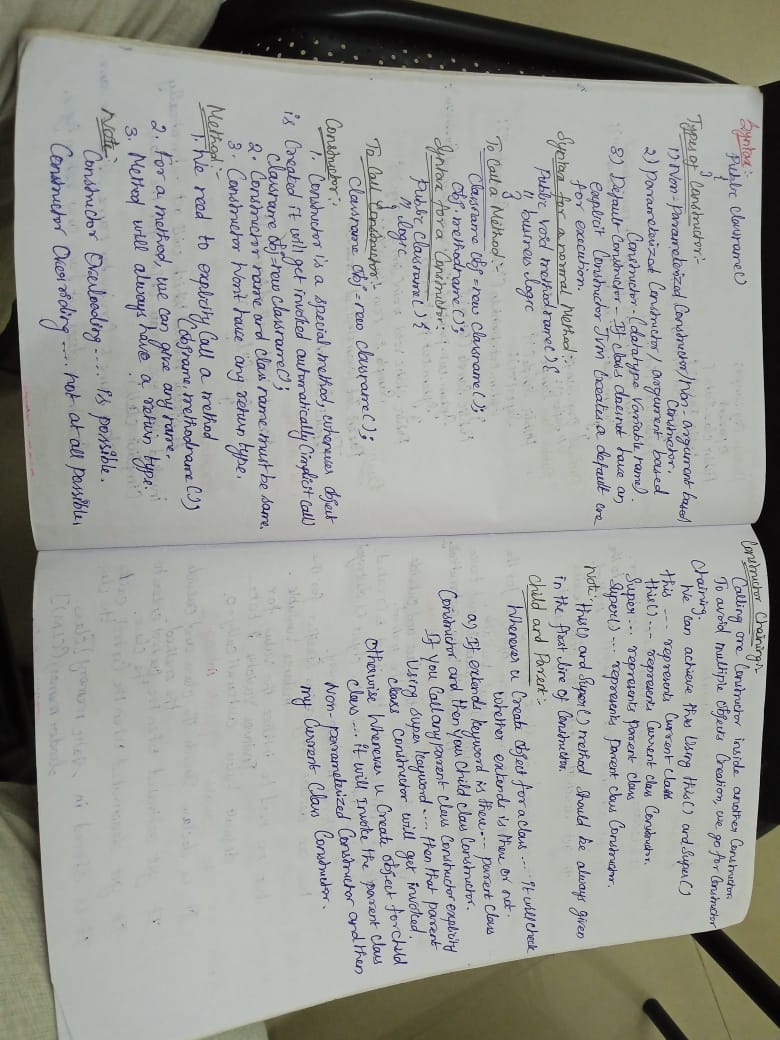 Syntax:
Public classname()
{
}
Types of Constructor:-
1) Non-Parameterized Constructor/Non-argument based
Constructor.
2) parameterized Constructor/ argument based
Constructor-(datatype Variable name).
3) Default Constructor - If class doesnot have an
explicit Constructor JVM Creates a default one
for execution.
Syntax for a normal Method:-
Public void methodname() {
// business logic
}
To Call a Method:-
Classname obj = new classname();
Obj. methodname();
Syntax for a Constructor:
Public Classname() {
// logic
}
To Call Constructor:-
Classname obj = new classname();
Constructor:-
1. Constructor is a special method, whenever object
is Created it will get invoked automatically (implicit call)
Classname obj = new classname();
2. Constructor name and class name must be same.
3. Constructor Won't have any return type.
Method:-
1. We need to explicity Call a method
(objname.methodname())
2. For a method, we can give any name.
3. Method will always have a return type.
Note:
Constructor Overloading .... is possible.
Constructor Overriding .... not at all possible.
Constructor Chaining:-
Calling one Constructor inside another Constructor.
To avoid multiple objects Creation, we go for Constructor
Chaining.
We can achieve this Using this() and Super()
this --- represents Current Class
this() --- represents Current class Constructor.
Super --- represents parent class
Super() --- represents parent class Constructor.
Note: this() and Super() method Should be always given
in the first line of Constructor.
Child and Parent:-
Whenever u Create object for a class --- it will check
whether extends is there or not.
a) If extends keyword is there --- parent Class
Constructor and then you Child class Constructor.
If you Call any parent class Constructor explicity
Using Super keyword .... then that parent
class Constructor will get invoked.
Otherwise Whenever u Create object for child
class --- it will Invoke the parent class
Non-parameterized Constructor and then
my Current Class Constructor.